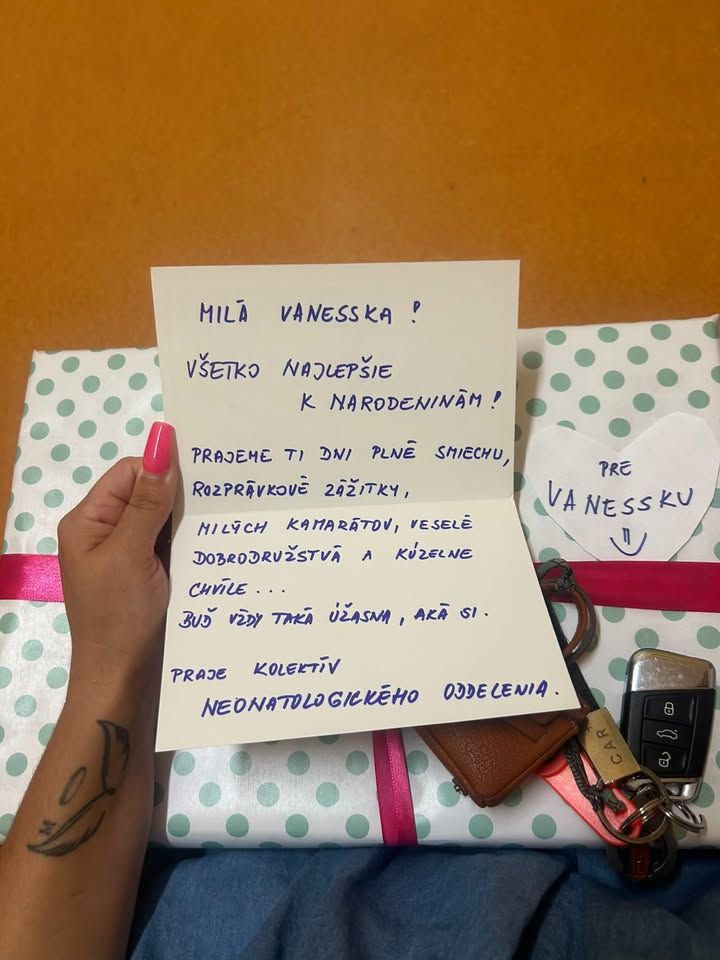 MILÁ VANESSKA!
VŠETKO NAJLEPŠIE
K NARODENINÁM!
PRAJEME TI DNI PLNÉ SMIECHU,
ROZPRÁVKOVÉ ZÁŽITKY,
MILÝCH KAMARÁTOV, VESELÉ
DOBRODRUŽSTVÁ A KÚZELNE
CHVÍLE...
BUĎ VŽDY TAKÁ ÚŽASNA, AKÁ SI.
PRAJE KOLEKTÍV
NEONATOLOGICKÉHO ODDELENIA.
PRE
VANESSKU
CAR
M